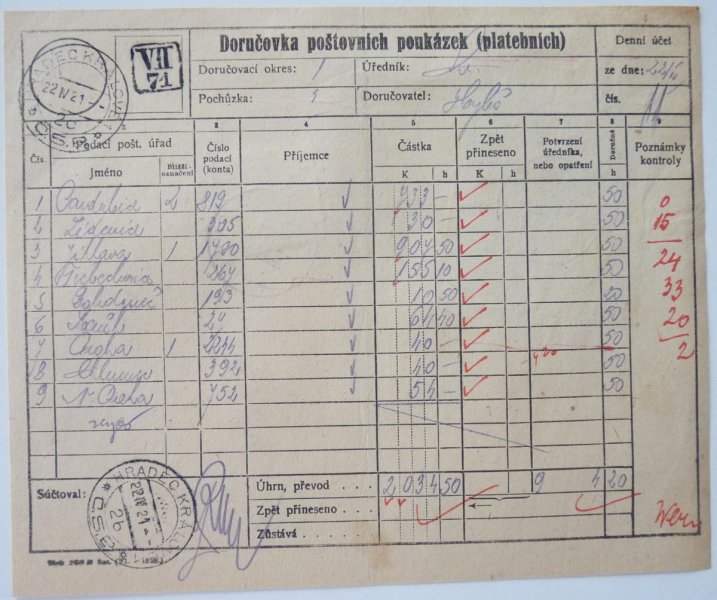 HRADEC KRÁLOVÉ 1
22 IV 21
2c
Č.S.P.
VII
71
Doručovka poštovních poukázek (platebních)
Doručovací okres: 1
Úředník:
Pochůzka: 1
Doručovatel:
Denní účet
ze dne: 22/IV
čís.
2 3 4 5 6 7 8 9
Čís.
Podací pošt. úřad
Jméno
Bližší označení
Číslo podací (konta)
Příjemce
Částka
K h
Zpět přineseno
K h
Potvrzení úředníka, nebo opatření
Doručné
h
Poznámky kontroly
1 Pardubice 2 819 733 – 50 0
2 Židenice 305 130 – 50 15
3 Jihlava 1 1780 904 50 50 24
4 264 155 10 50 33
5 193 10 50 20 20
6 24 64 40 50 2
7 Praha 1 2344 40 – 50
8 Chlumec 392 40 – 50
9 N. 752 54 – 50
Součtoval:
Úhrn, převod . . . 2034 50 9 4 20
Zpět přineseno . . .
Zůstává . . .
HRADEC KRÁLOVÉ 1
22 IV 21
2b
Č.S.P.